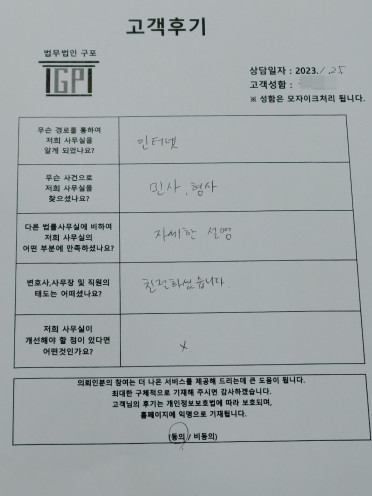 고객후기
법무법인 구포
GP
상담일자 : 2023. 1. 25
고객성함 :
※ 성함은 모자이크처리 됩니다.
무슨 경로를 통하여
저희 사무실을
알게 되었나요?
인터넷
무슨 사건으로
저희 사무실을
찾으셨나요?
민사, 형사
다른 법률사무실에 비하여
저희 사무실의
어떤 부분에 만족하셨나요?
자세한 설명
변호사,사무장 및 직원의
태도는 어떠셨나요?
친절하셨습니다.
저희 사무실이
개선해야 할 점이 있다면
어떤것인가요?
x
의뢰인분의 참여는 더 나은 서비스를 제공해 드리는데 큰 도움이 됩니다.
최대한 구체적으로 기재해 주시면 감사하겠습니다.
고객님의 후기는 개인정보보호법에 따라 보호되며,
홈페이지에 익명으로 기재됩니다.
(동의 / 비동의)